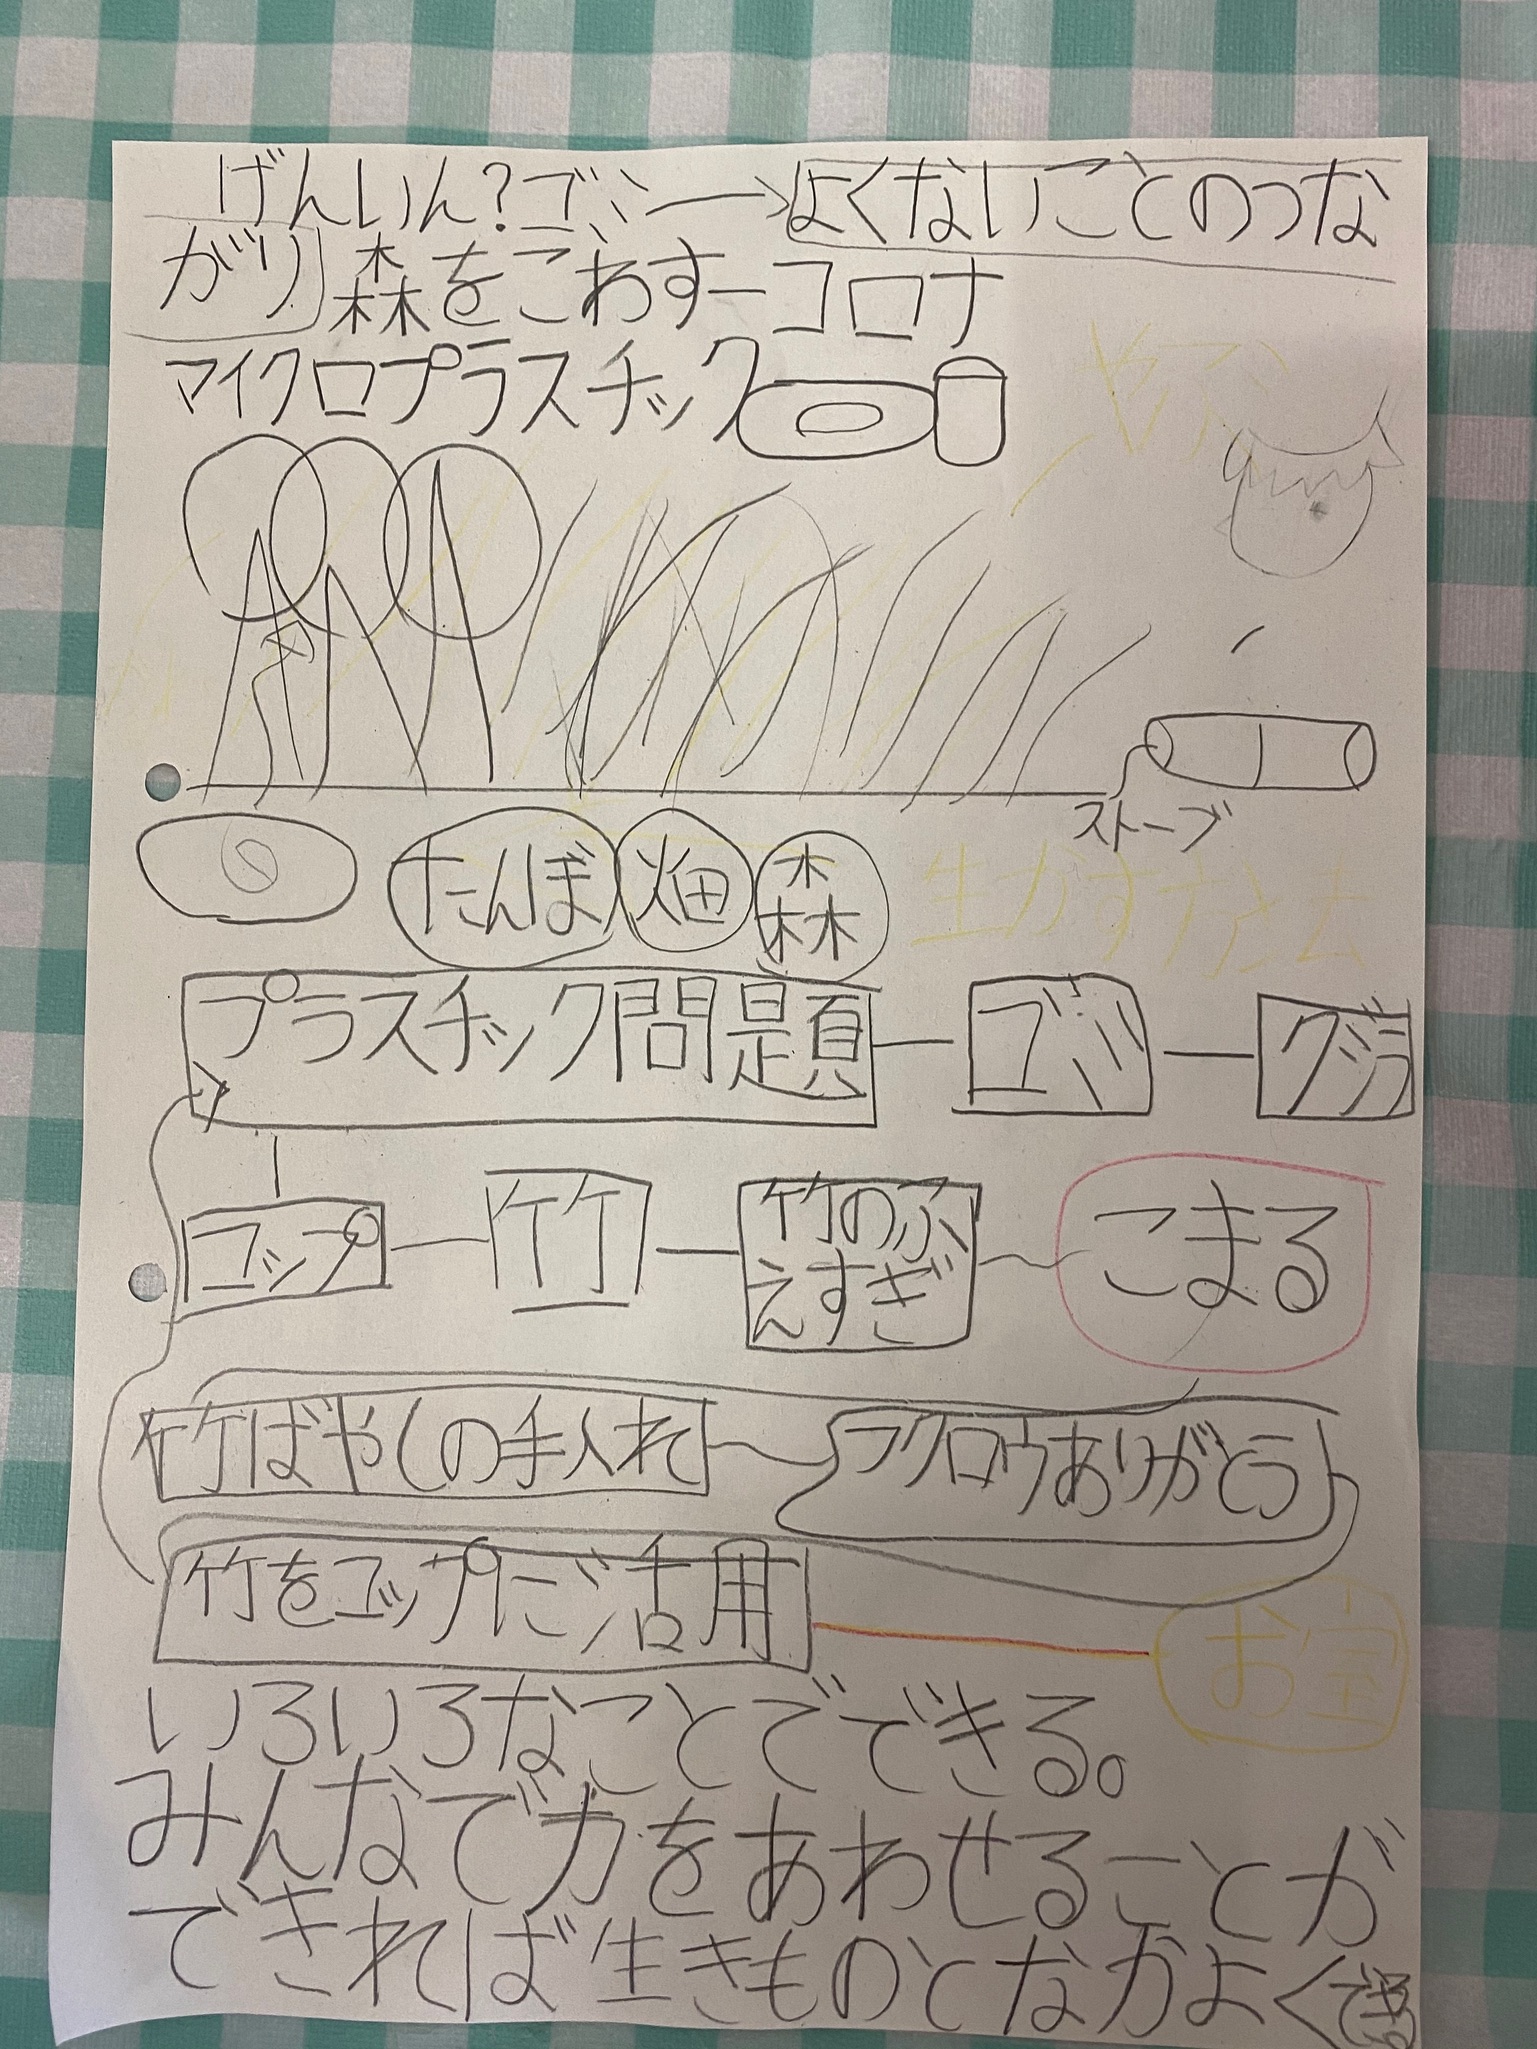 げんいん?ゴミ→よくないことのつな
がり 森をこわすーコロナ
マイクロプラスチック
ストーブ
たんぼ 畑 森
プラスチック問題 ゴミ クジラ
コップ 竹 竹のふ こまる
えすぎ
竹ばやしの手入れ フクロウありがとう
竹をコップにご活用 お宝
いろいろなことでできる。
みんなで力をあわせることが
できれば生きものとなかよくできる